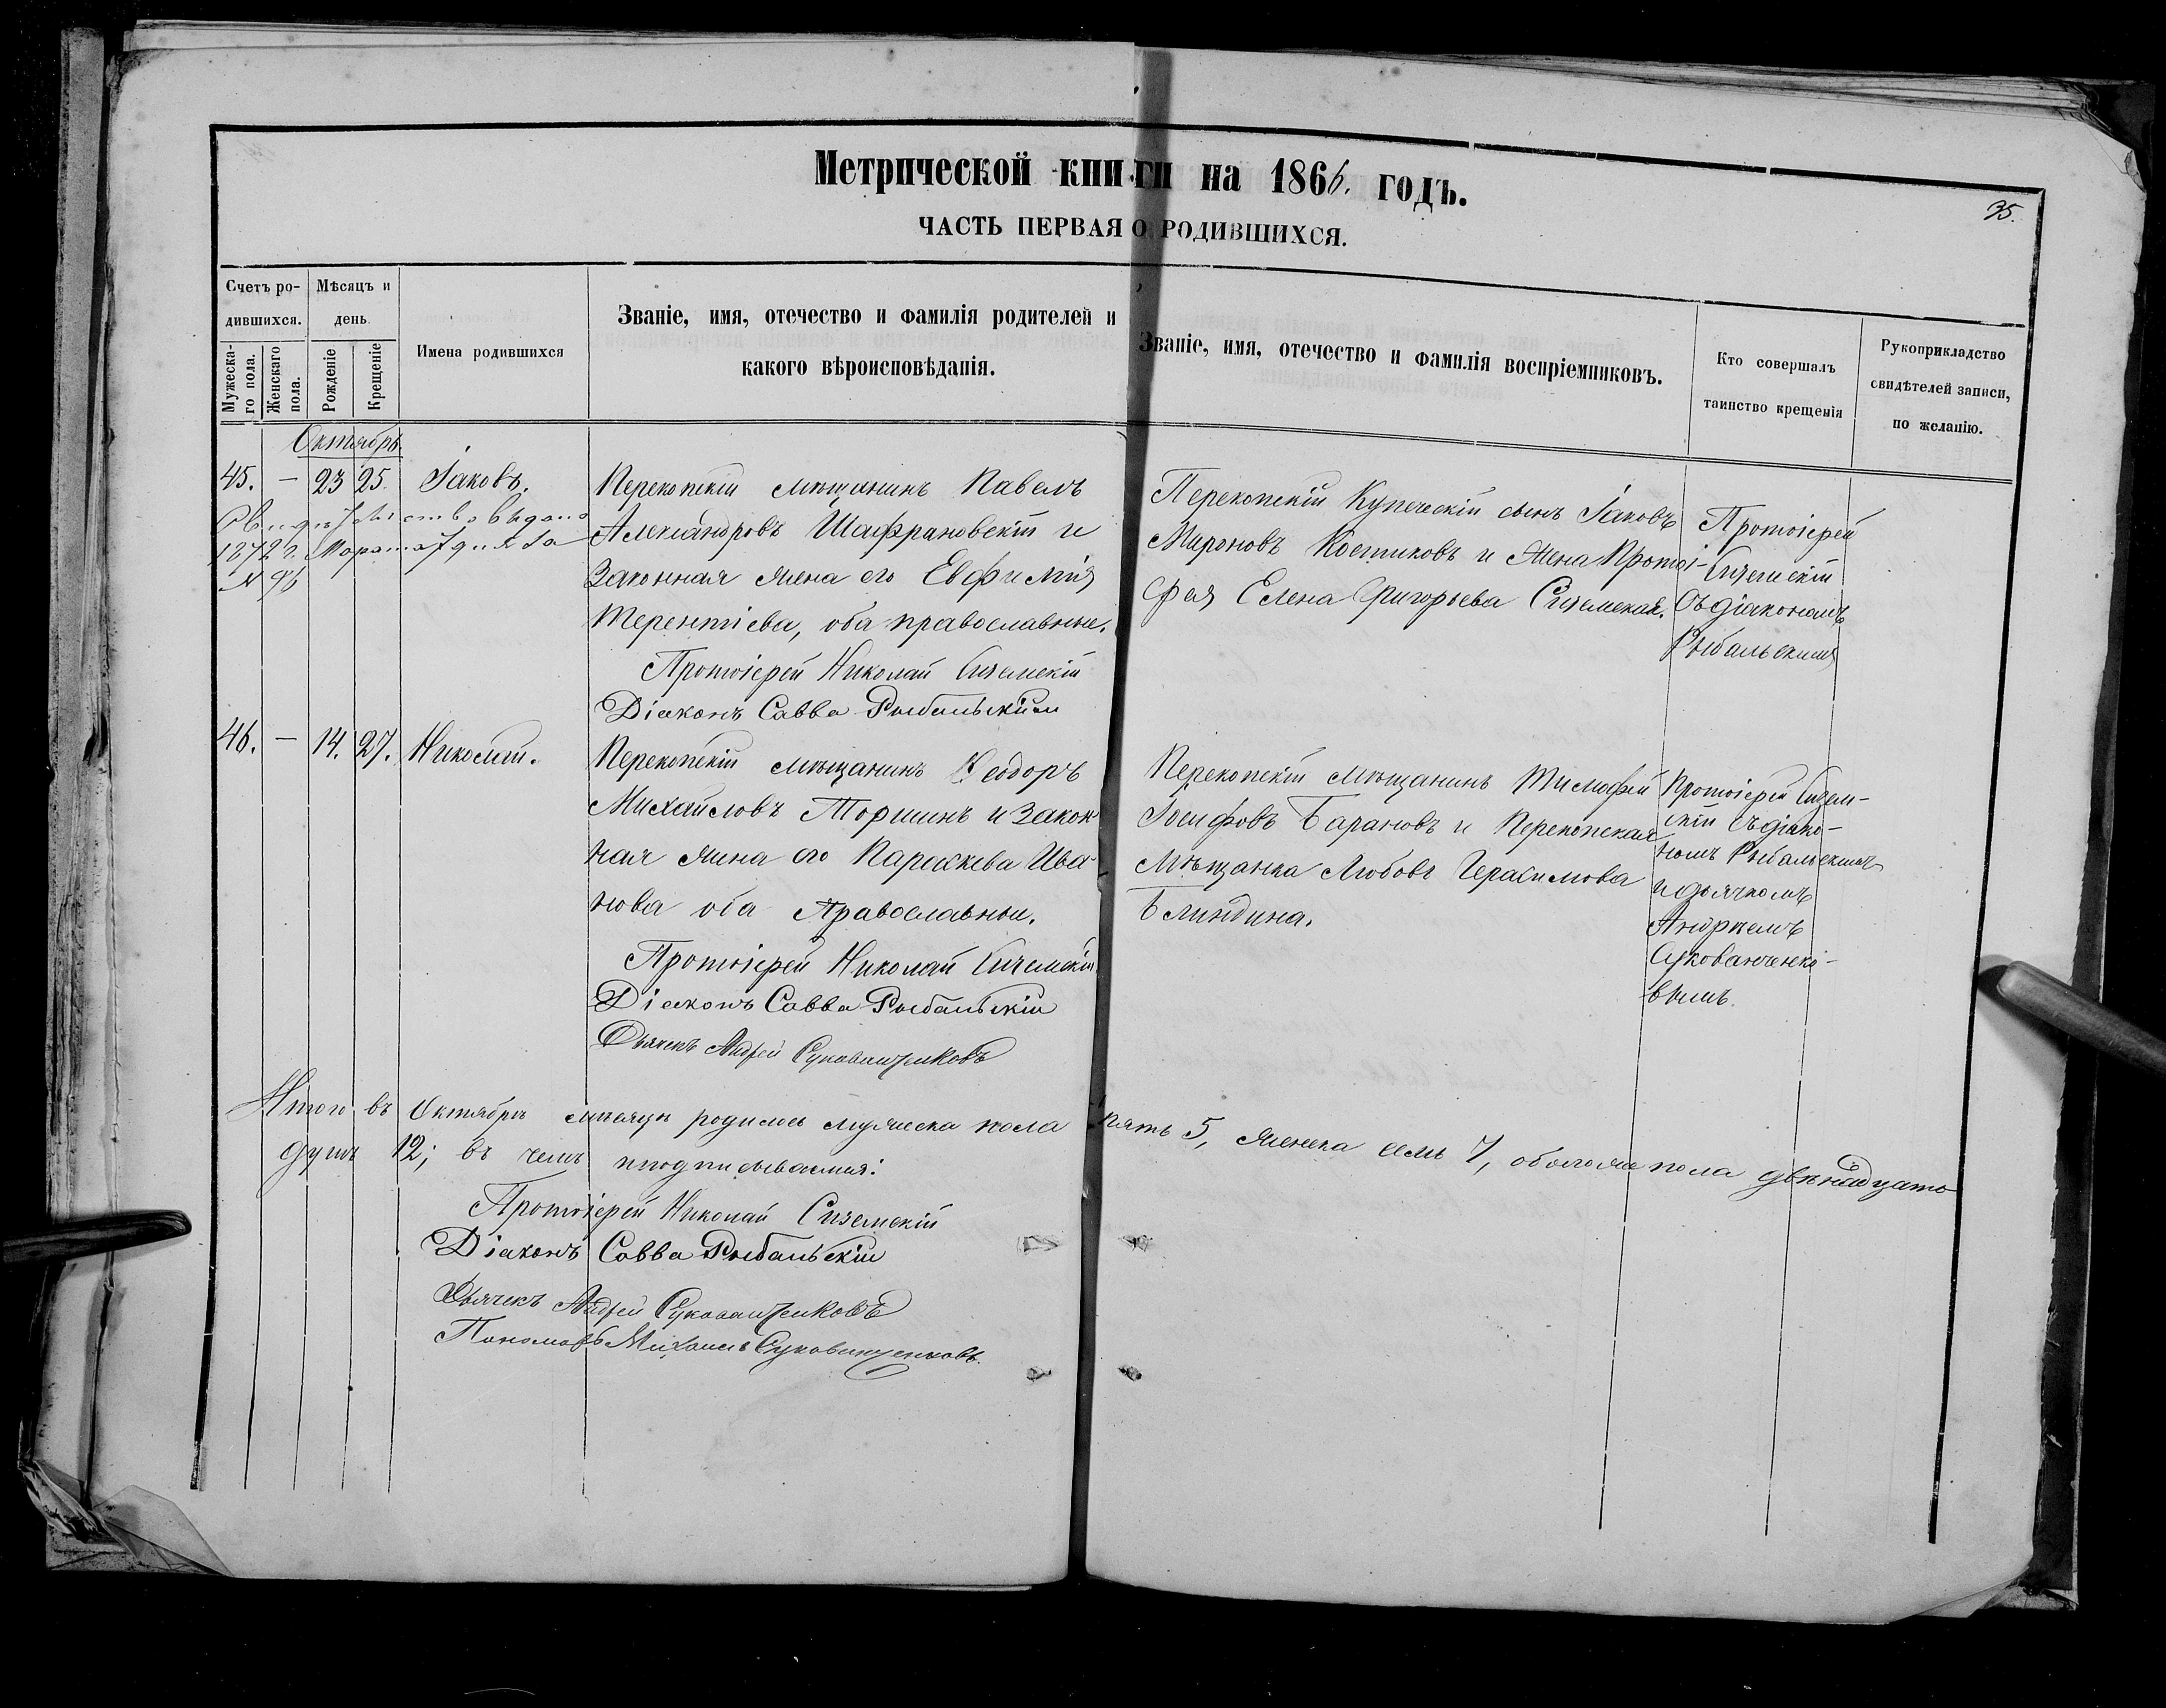 Метрической книги на 1866. годъ.
35.
ЧАСТЬ ПЕРВАЯ О РОДИВШИХСЯ.
Счетъ родившихся.
Мужескаго пола.
Женскаго пола.
Мѣсяцъ и день.
Рожденіе
Крещеніе
Имена родившихся
Званіе, имя, отечество и фамилія родителей и
какого вѣроисповѣданія.
Званіе, имя, отечество и фамилія воспріемниковъ.
Кто совершалъ
таинство крещенія
Рукоприкладство
свидѣтелей записи,
по желанію.
Октябрь
45. — 23 25. Іаковъ.
Свидѣтельство выдано
1872 г. Марта 7 дня за
№ 95
Перекопскій мѣщанинъ Павелъ
Александровъ Шафрановскій и
законная жена его Евфимія
Терентіева, оба православные.
Протоіерей Николай Сиземскій
Діаконъ Савва Рыбальскій
Перекопскій Купеческій сынъ Іаковъ
Мироновъ Костиковъ и жена Протоі-
ерея Елена Григорьева Сиземская.
Протоіерей
Сиземскій
съ діакономъ
Рыбальскимъ
46. — 14. 27. Николай.
Перекопскій мѣщанинъ Ѳеодоръ
Михайловъ Торшинъ и закон
ная жена его Параскева Ива-
нова оба Православные.
Протоіерей Николай Сиземскій
Діаконъ Савва Рыбальскій
Дьячекъ Андрей Сукованченковъ
Перекопскій мѣщанинъ Тимофей
Іосифовъ Барановъ и Перекопская
мѣщанка Любовь Герасимова
Блиндина.
Протоіерей Сизем-
скій съ діако-
номъ Рыбальскимъ
и дьячкомъ
Андреемъ
Сукованченко-
вымъ.
Итого въ Октябрѣ мѣсяцѣ родилось мужеска пола пять 5, женска семь 7, обоего пола двѣнадцать
душъ 12; въ чемъ и подписываемся:
Протоіерей Николай Сиземскій
Діаконъ Савва Рыбальскій
Дьячекъ Андрей Сукованченковъ
Пономарь Михаилъ Сукованченковъ.